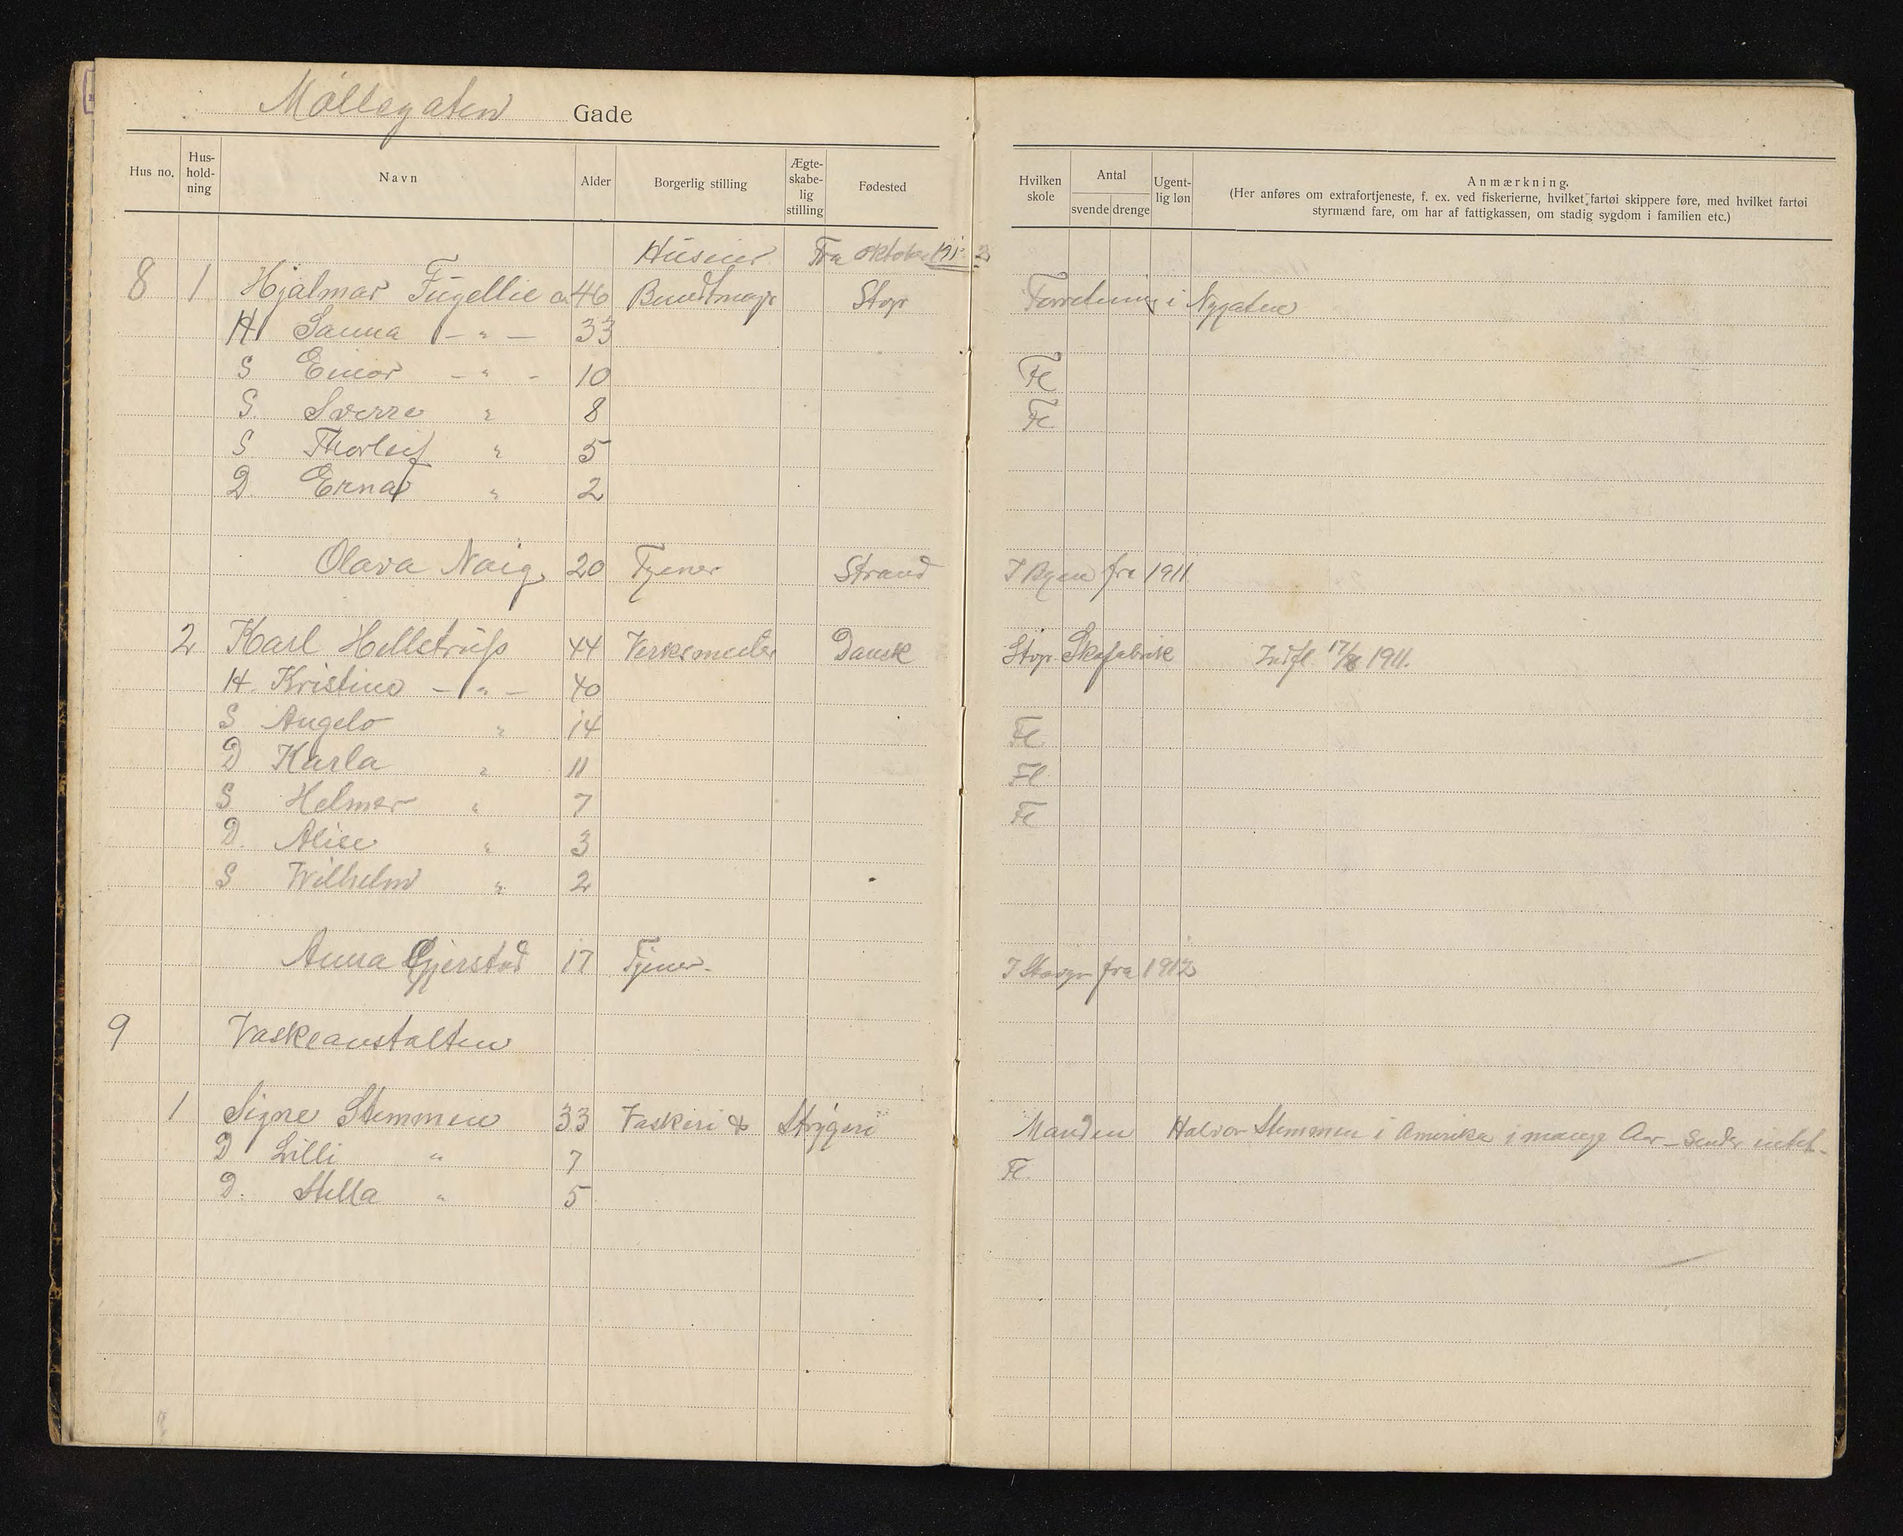 Møllegaten Gade
Hus no. Hus-holdning Navn Alder Borgerlig stilling Ægteskabelig stilling Fødested Hvilken skole Antal svende drenge Ugentlig løn Anmærkning.
(Her anføres om extrafortjeneste, f. ex. ved fiskerierne, hvilket fartøi skippere føre, med hvilket fartøi
styrmænd fare, om har af fattigkassen, om stadig sygdom i familien etc.)
Huseier Fra oktober 1912
8 1 Hjalmar Fugellie 46 Buntmagr Stvgr Forretning i Nygaten
H Sanna — " — 33
S Einar - " - 10 Fl
S. Sverre " 8 Fl
S Thorleif " 5
D. Erna " 2
Olava Naig 20 Tjener Strand I Byen fra 1911
2 Karl Hellstrup 44 Verksmester Dansk Stvgr Skofabrik Indfl 17/8 1911.
H. Kristine — " — 40
S Angelo " 14 Fl
D Karla " 11 Fl
S Helmer " 7 Fl
D. Alise " 3
S Wilhelm " 2
Anna Gjerstad 17 Tjener. I Stavgr fra 1912
9 Vaskeanstalten
1 Signe Stemmen 33 Vaskeri & Strygeri Manden Halvor Stemmen i Amerika i mange Aar — Sender intet.
D Lilli " 7 Fl.
D. Stella " 5